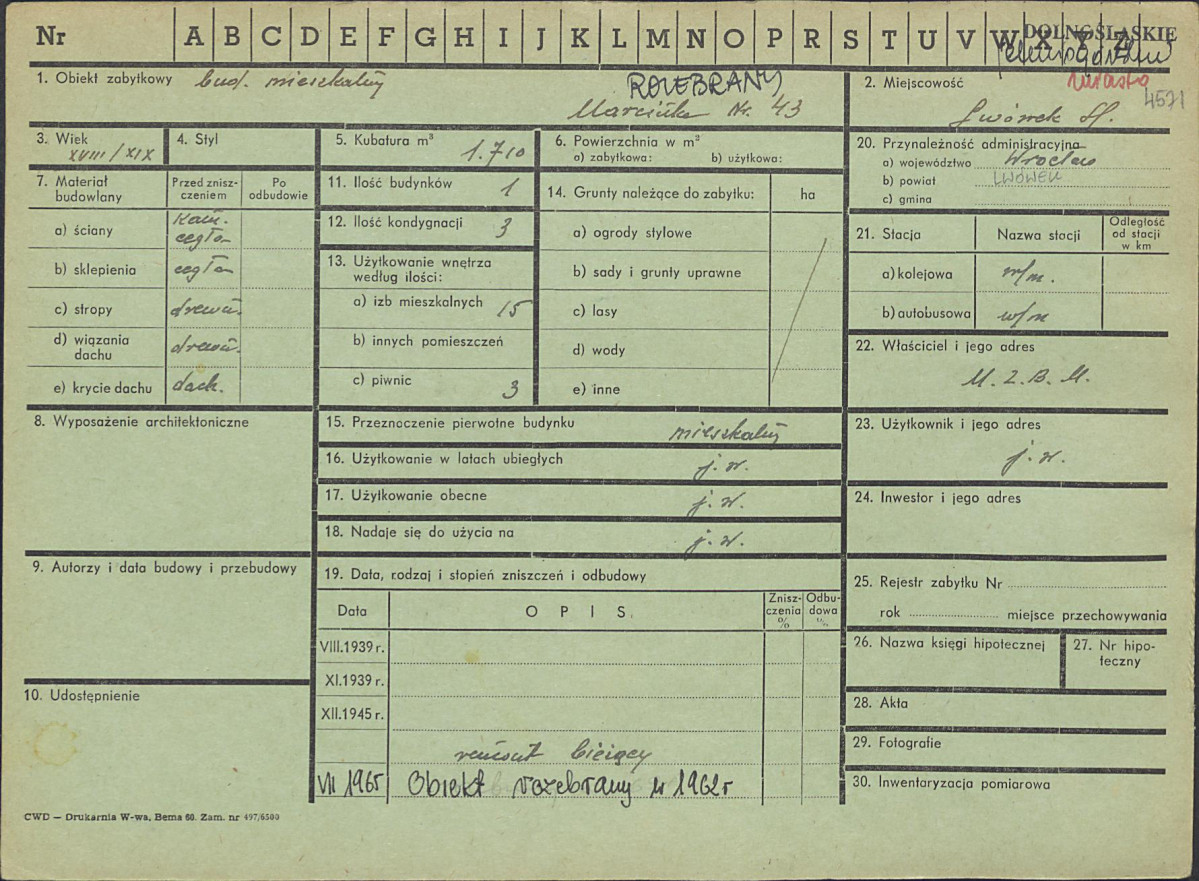 Nr A B C D E F G H I J K L M N O P R S T U V W X Y Z
DOLNOŚLĄSKIE
1. Obiekt zabytkowy bud. mieszkalny
ROZEBRANY
Marcinka Nr. 43
2. Miejscowość
miasto
4571
Lwówek Śl.
3. Wiek
XVIII/XIX
4. Styl
5. Kubatura m³
1.710
6. Powierzchnia w m²
a) zabytkowa: b) użytkowa:
7. Materiał budowlany
Przed zniszczeniem
Po odbudowie
a) ściany kam. cegła
b) sklepienia cegła
c) stropy drewn.
d) wiązania dachu drewn.
e) krycie dachu dach.
8. Wyposażenie architektoniczne
9. Autorzy i data budowy i przebudowy
10. Udostępnienie
11. Ilość budynków 1
12. Ilość kondygnacji 3
13. Użytkowanie wnętrza według ilości:
a) izb mieszkalnych 15
b) innych pomieszczeń
c) piwnic 3
14. Grunty należące do zabytku: ha
a) ogrody stylowe
b) sady i grunty uprawne
c) lasy
d) wody
e) inne
15. Przeznaczenie pierwotne budynku mieszkalny
16. Użytkowanie w latach ubiegłych j.w.
17. Użytkowanie obecne j.w.
18. Nadaje się do użycia na j.w.
19. Data, rodzaj i stopień zniszczeń i odbudowy
Data OPIS Zniszczenia % Odbudowa %
VIII.1939 r.
XI.1939 r.
XII.1945 r.
remont bieżący
VII 1965 Obiekt rozebrany w 1962 r
20. Przynależność administracyjna
a) województwo Wrocław
b) powiat LWÓWEK
c) gmina
21. Stacja Nazwa stacji Odległość od stacji w km
a) kolejowa w/m.
b) autobusowa w/m
22. Właściciel i jego adres
M.Z.B.M.
23. Użytkownik i jego adres
j.w.
24. Inwestor i jego adres
25. Rejestr zabytku Nr
rok miejsce przechowywania
26. Nazwa księgi hipotecznej
27. Nr hipoteczny
28. Akta
29. Fotografie
30. Inwentaryzacja pomiarowa
CWD — Drukarnia W-wa, Bema 60. Zam. nr 497/6500